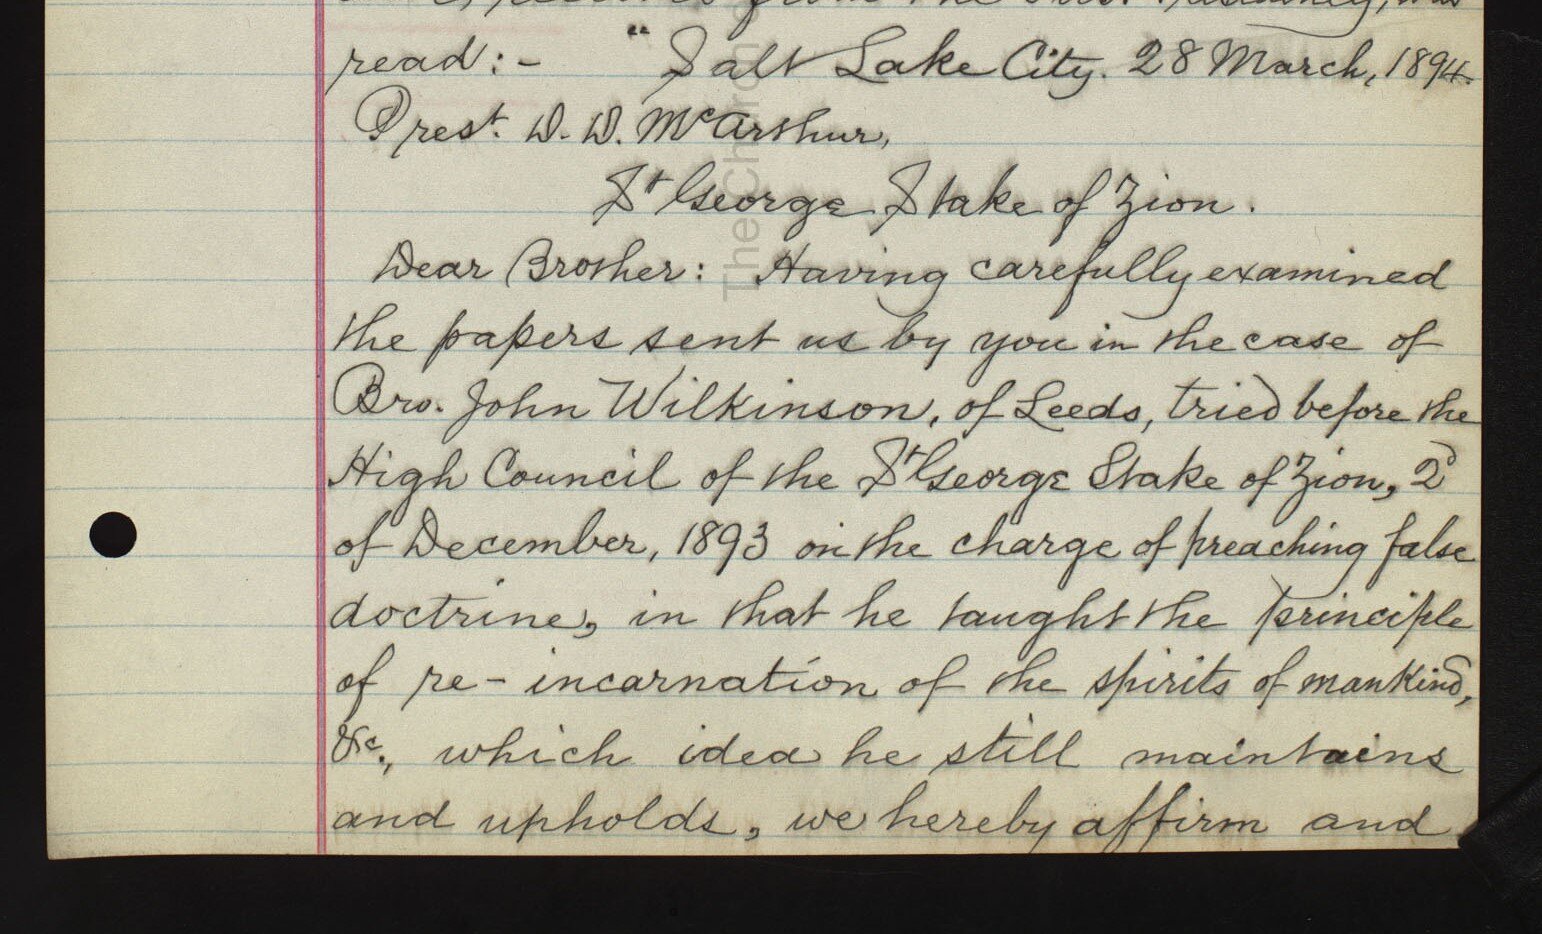 received from the First Presidency, was
read:- "Salt Lake City. 28 March, 1894.
Prest. D. D. McArthur,
St George Stake of Zion.
Dear Brother: Having carefully examined
the papers sent us by you in the case of
Bro. John Wilkinson, of Leeds, tried before the
High Council of the St George Stake of Zion, 2d
of December, 1893 on the charge of preaching false
doctrine, in that he taught the principle
of re-incarnation of the spirits of mankind,
&c., which idea he still maintains
and upholds, we hereby affirm and
The Church